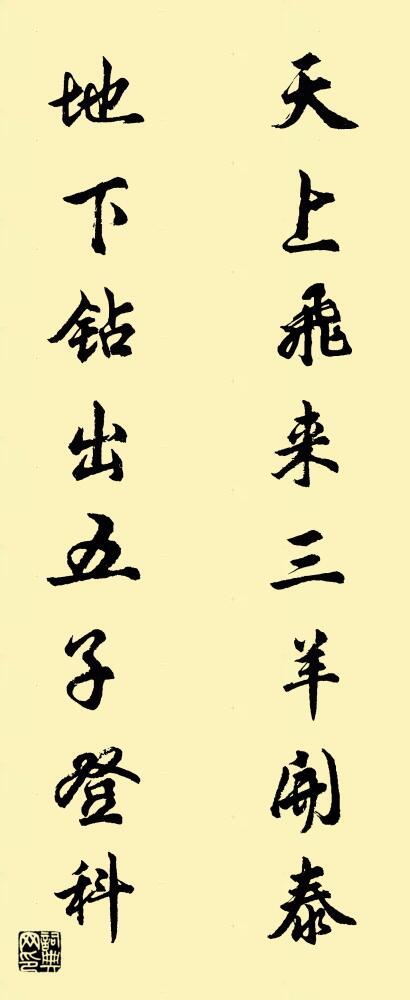 天上飛来三羊開泰
地下钻出五子登科
詞典网印